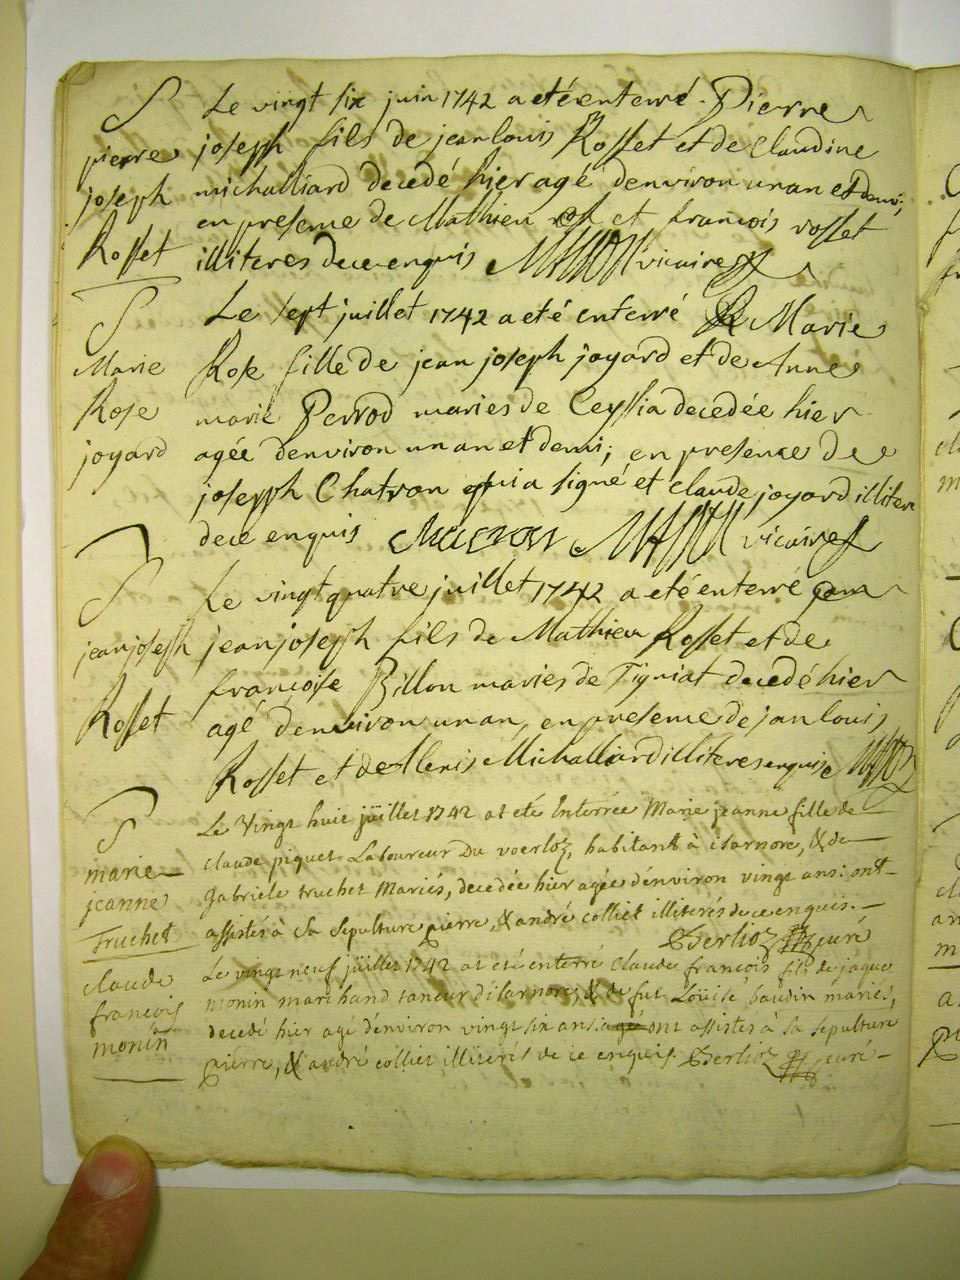 S
pierre
joseph
Rosset
Le vingt six juin 1742 a eté enterré Pierre
joseph fils de jean louis Rosset et de Claudine
michalliard decedé hier agé denviron un an et demi,
en presence de Mathieu et françois rosset
illiteres de ce enquis vicaire
S
Marie
Rose
joyard
Le sept juillet 1742 a eté enterré Marie
Rose fille de jean joseph joyard et de Anne
marie Perrod mariés de Ceyssia decedée hier
agée denviron un an et demi; en presence de
joseph Chatron qui a signé et claude joyard illitere
de ce enquis vicaire
S
jean joseph
Rosset
Le vingt quatre juillet 1742 a eté enterré
jean joseph fils de Mathieu Rosset et de
françoise Billon mariés de Tigniat decedé hier
agé denviron un an, en presence de jan louis
Rosset et de Alexis Michalliard illiteres enquis
S
marie
jeanne
Truchet
Le Vingt huit jüillet 1742 at eté Enterrée Marie jeanne fille de
claude piquet Laboureur Du voerloz, habitant à isarnore, & de
Gabriele truchet Mariés, decedée hier agée d'environ vingt ans: ont
assistés à sa sepulture pierre, & andré colliet illiterés de ce enquis.
Berlioz curé
claude
françois
monin
Le vingt neuf jüillet 1742 at eté enterré claude françois fils de jaque
monin marchand taneur d'isarnore, & de fut Loüise baudin mariés,
decedé hier agé d'environ vingt six ans agé ont assistés à sa sepulture
pierre, & andré colliet illiterés de ce enquis. Berlioz curé